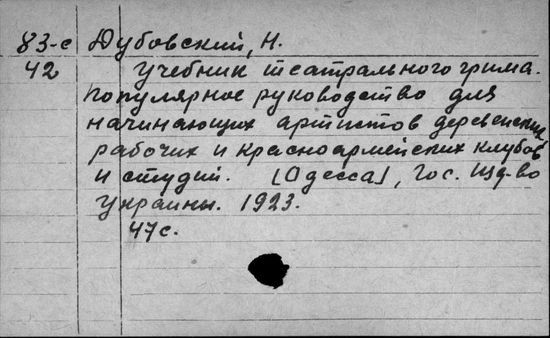 83-с Дубовский, Н.
42 Учебник театрального грима.
Популярное руководство для
начинающих артистов деревенских
рабочих и красноармейских клубов
и студий. [Одесса], Гос. Изд-во
Украины. 1923.
47 с.